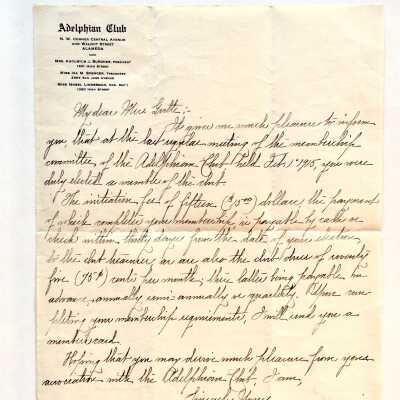 Adelphian Club
N. W. CORNER CENTRAL AVENUE
AND WALNUT STREET
ALAMEDA
MRS. KATE J. BURDNER, PRESIDENT
MISS IDA M. SPENCER, TREASURER
MISS MABEL LINDERMAN, FIN. SEC'Y
My dear Miss
It gives me much pleasure to inform
you, that at the last regular meeting of the membership
committee, of the Adelphian Club held Feb. 1st 1915, you were
duly elected a member of the club.
The initiation fee of fifteen ($15.00) dollars, the payment
of which completes your membership is payable by cash or
check within thirty days from the date of your election
to the club treasurer, as are also the club dues of seventy
five (75¢) cents per month; this latter being payable in
advance, annually, semi-annually or quarterly. Upon com-
pleting your membership requirements, I will send you a
member's card.
Hoping that you may derive much pleasure from your
association with the Adelphian Club, I am,
Sincerely Yours